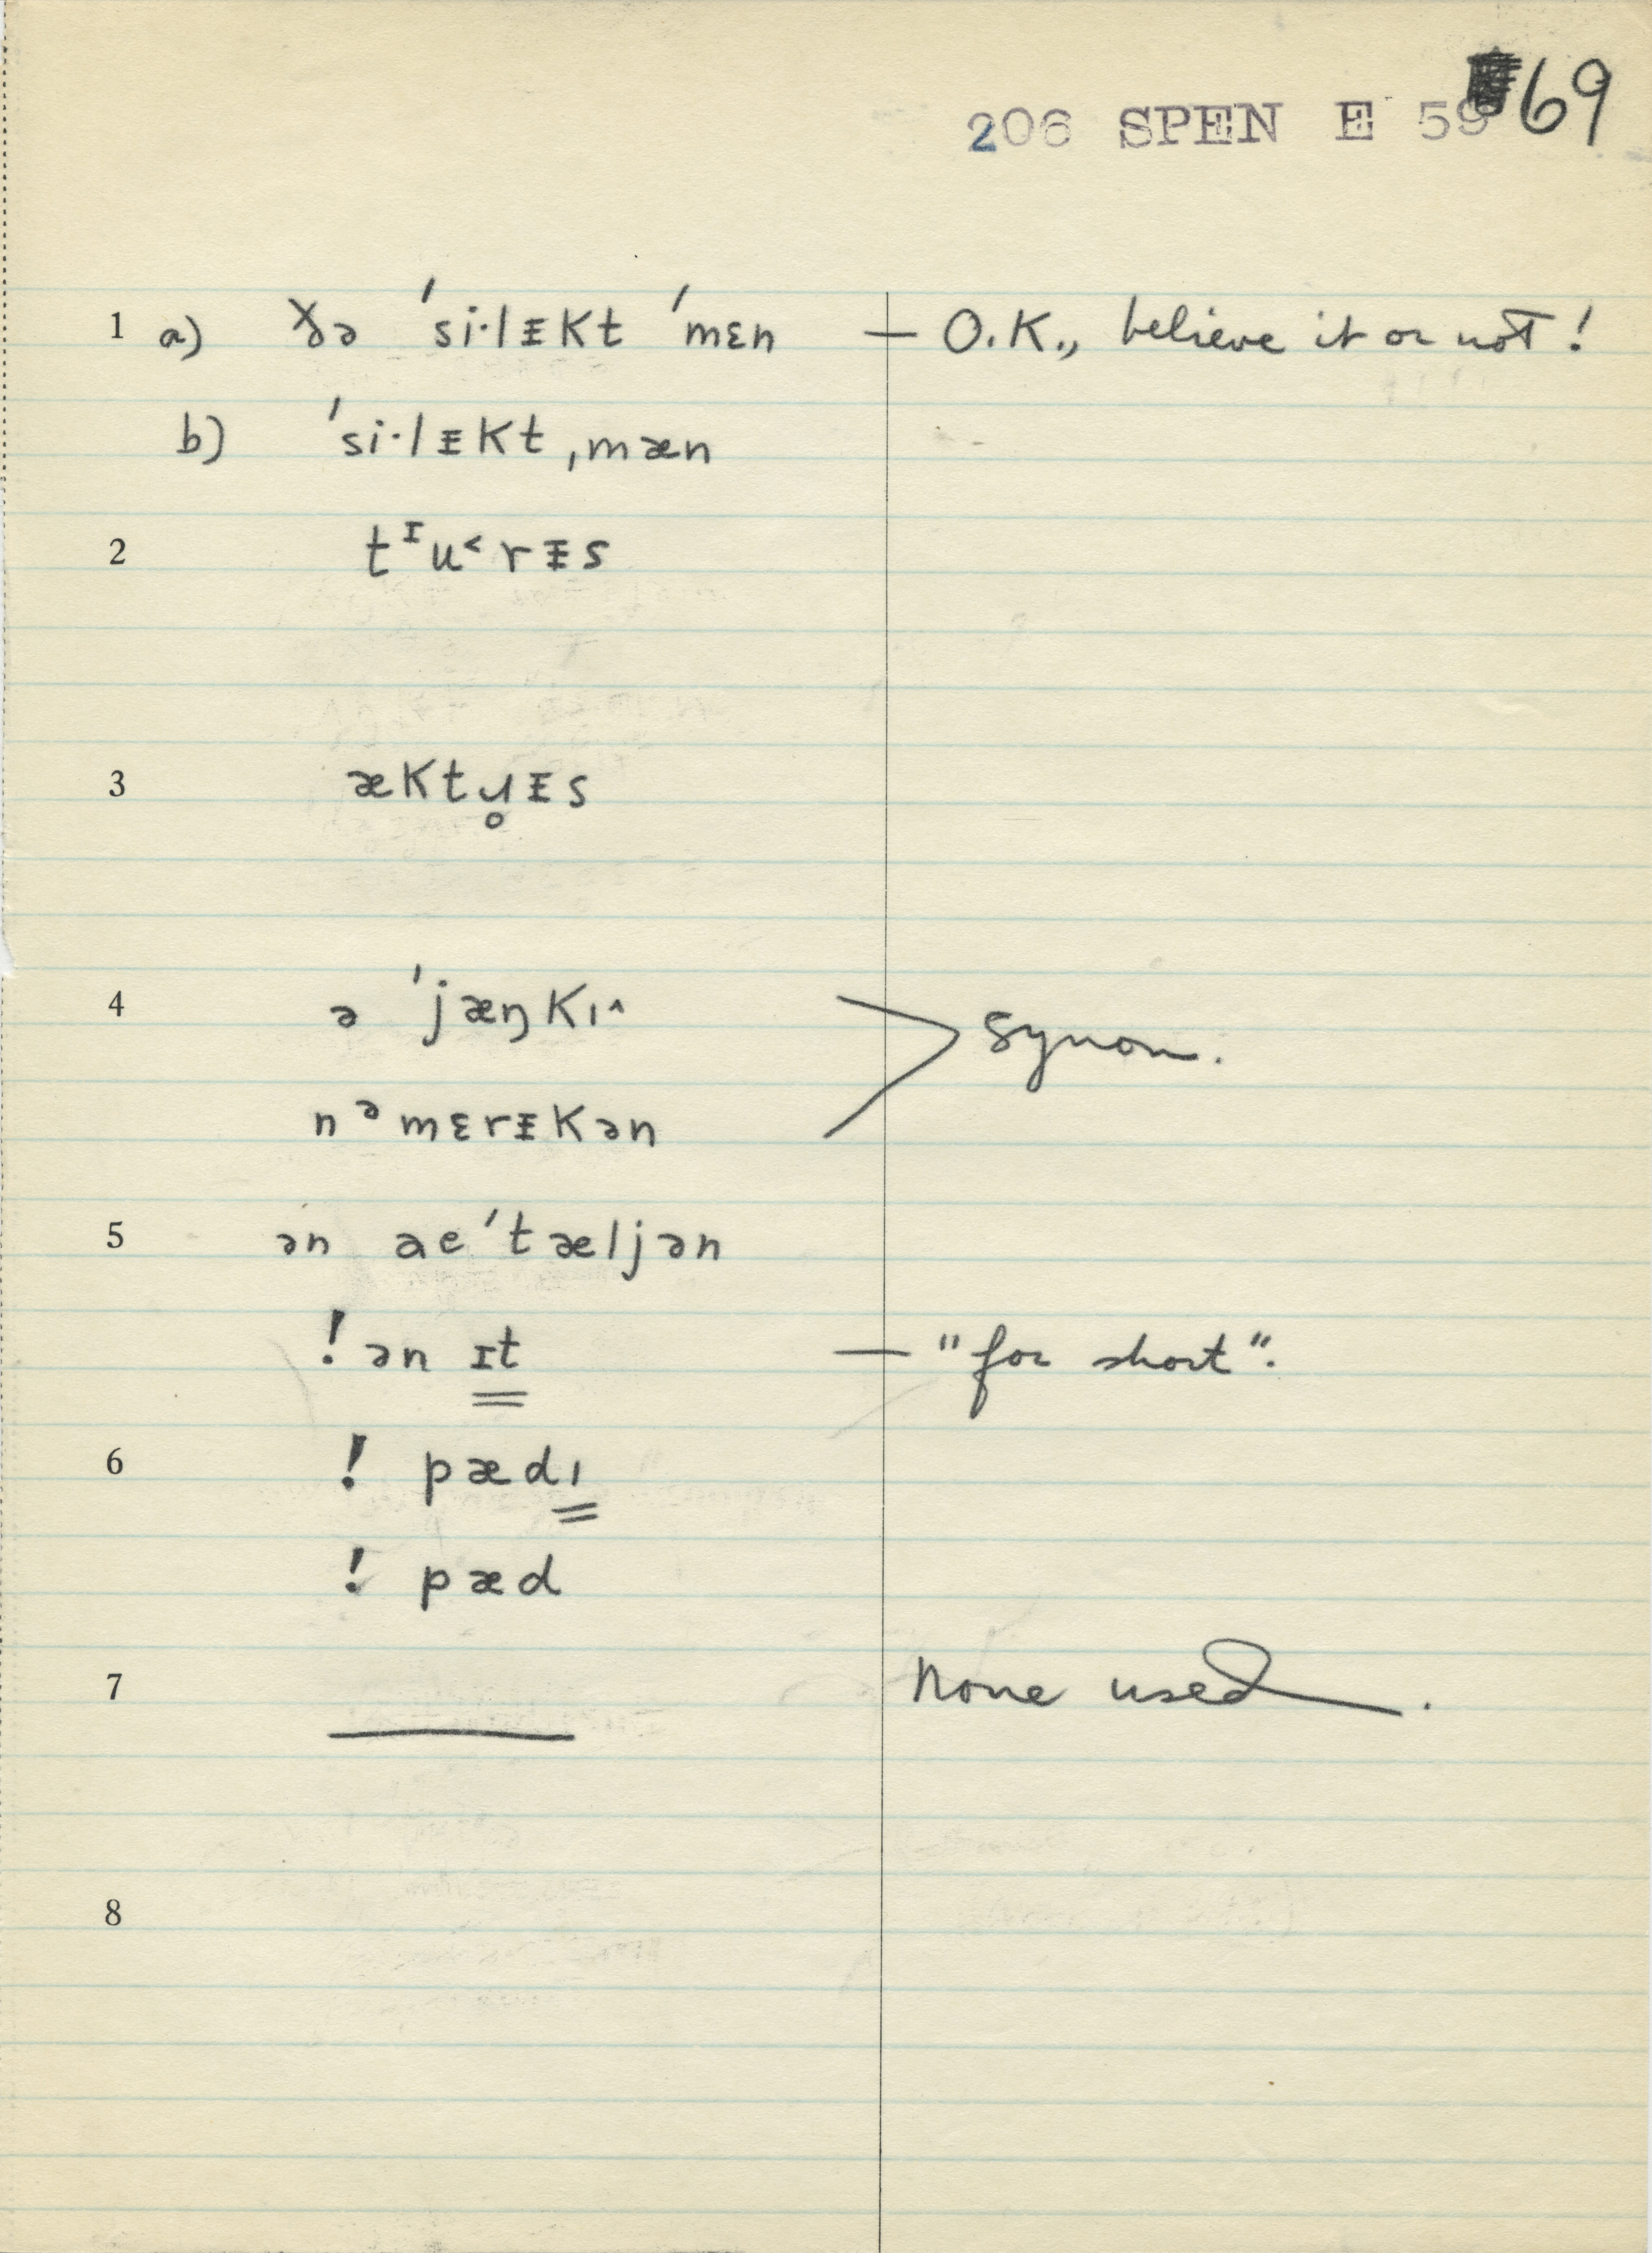 206 SPEN E 59 69
1 a) ɣə ˈsi·lᵻkt ˈmɛn — O.K., believe it or not!
b) ˈsi·lᵻkt ˌmæn
2 tᶦu˂rᵻs
3 æktɹ̥ᵻs
4 ə ˈjæŋkɪ^
> synon.
nᵊmɛrᵻkən
5 ən aeˈtæljən
! ən ɪt — "for short".
6 ! pædɪ
! pæd
7 None used.
8